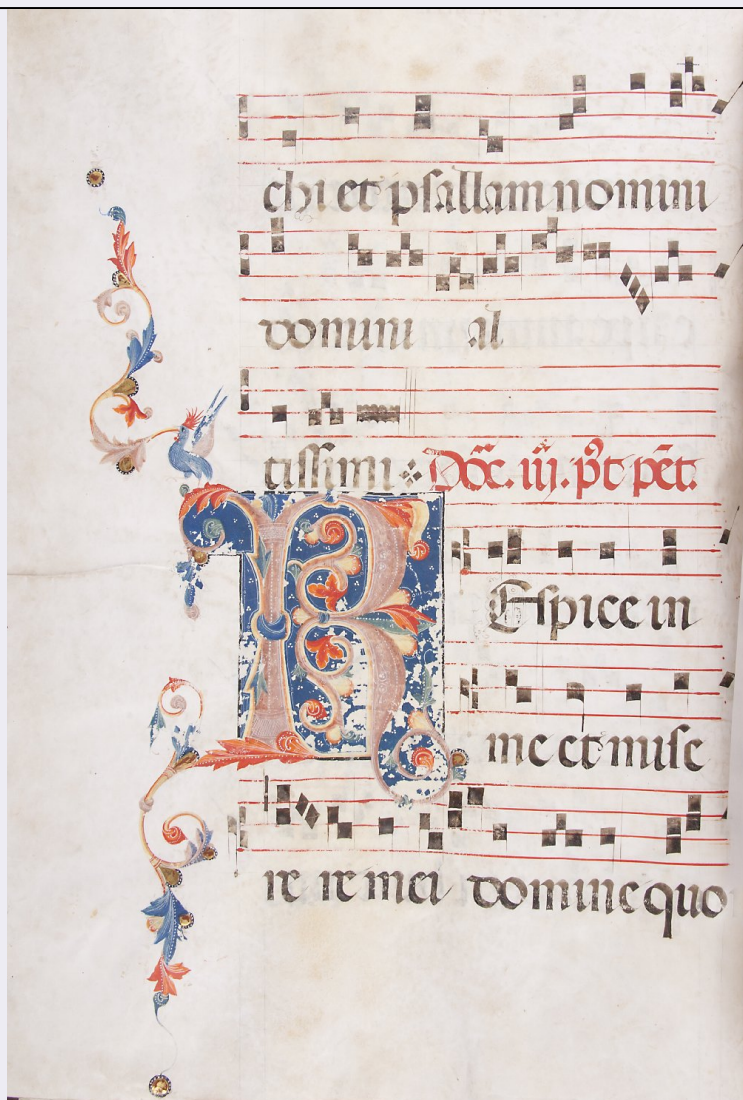 chi et psallam nomini
domini al
tissimi Dõc. iij. p̃t pẽt.
REspice in
me et mise
re re mei domine quo